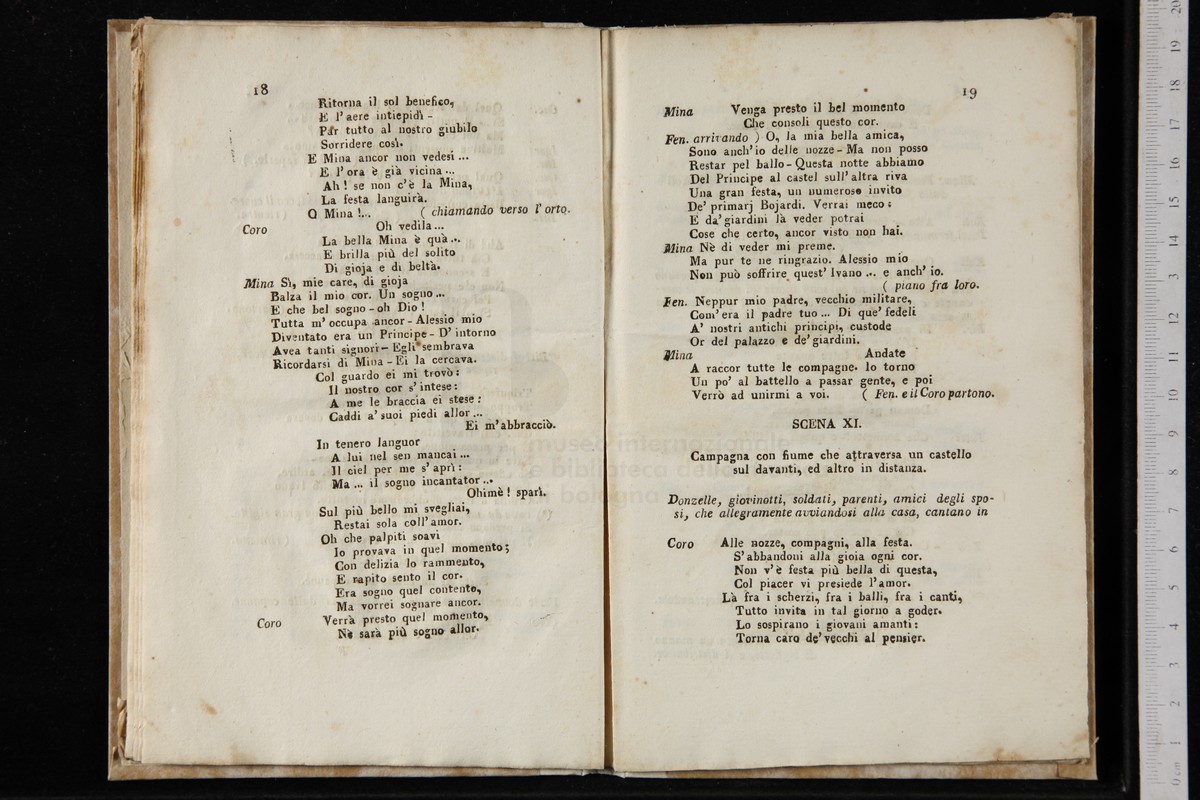 18
Ritorna il sol benefico,
E l'aere intiepidì -
Par tutto al nostro giubilo
Sorridere così.
E Mina ancor non vedesi ...
E l'ora è già vicina ...
Ah! se non c'è la Mina,
La festa languirà.
O Mina !... ( chiamando verso l'orto.
Coro Oh vedila ...
La bella Mina è quà ...
E brilla più del solito
Di gioja e di beltà.
Mina Sì, mie care, di gioja
Balza il mio cor. Un sogno ...
E che bel sogno - oh Dio !
Tutta m'occupa ancor - Alessio mio
Diventato era un Principe - D'intorno
Avea tanti signori - Egli sembrava
Ricordarsi di Mina - Ei la cercava.
Col guardo ei mi trovò :
Il nostro cor s'intese :
A me le braccia ei stese :
Caddi a' suoi piedi allor ...
Ei m'abbracciò.
In tenero languor
A lui nel sen mancai ...
Il ciel per me s'aprì :
Ma ... il sogno incantator ...
Ohimè ! sparì.
Sul più bello mi svegliai,
Restai sola coll'amor.
Oh che palpiti soavi
Io provava in quel momento ;
Con delizia lo rammento,
E rapito sento il cor.
Era sogno quel contento,
Ma vorrei sognare ancor.
Coro Verrà presto quel momento,
Nè sarà più sogno allor.
19
Mina Venga presto il bel momento
Che consoli questo cor.
Fen. arrivando ) O, la mia bella amica,
Sono anch'io delle nozze - Ma non posso
Restar pel ballo - Questa notte abbiamo
Del Principe al castel sull'altra riva
Una gran festa, un numeroso invito
De' primarj Bojardi. Verrai meco :
E da' giardini là veder potrai
Cose che certo, ancor visto non hai.
Mina Nè di veder mi preme.
Ma pur te ne ringrazio. Alessio mio
Non può soffrire quest' Ivano ... e anch' io.
( piano fra loro.
Fen. Neppur mio padre, vecchio militare,
Com'era il padre tuo ... Di que' fedeli
A' nostri antichi principi, custode
Or del palazzo e de' giardini.
Mina Andate
A raccor tutte le compagne. Io torno
Un po' al battello a passar gente, e poi
Verrò ad unirmi a voi. ( Fen. e il Coro partono.
SCENA XI.
Campagna con fiume che attraversa un castello
sul davanti, ed altro in distanza.
Donzelle, giovinotti, soldati, parenti, amici degli spo-
si, che allegramente avviandosi alla casa, cantano in
Coro Alle nozze, compagni, alla festa.
S'abbandoni alla gioia ogni cor.
Non v'è festa più bella di questa,
Col piacer vi presiede l'amor.
Là fra i scherzi, fra i balli, fra i canti,
Tutto invita in tal giorno a goder.
Lo sospirano i giovani amanti :
Torna caro de' vecchi al pensier.